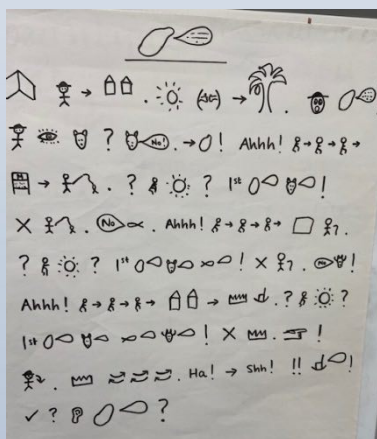 ? No! . → ! Ahhh! → → →
→ . ? ? 1st !
X . No . Ahhh! → → → ? .
? ? 1st ! X ? . No !
Ahhh! → → → → . ? ?
1st ! X . !
. . Ha! → Shh! !! !
✓ ? ?